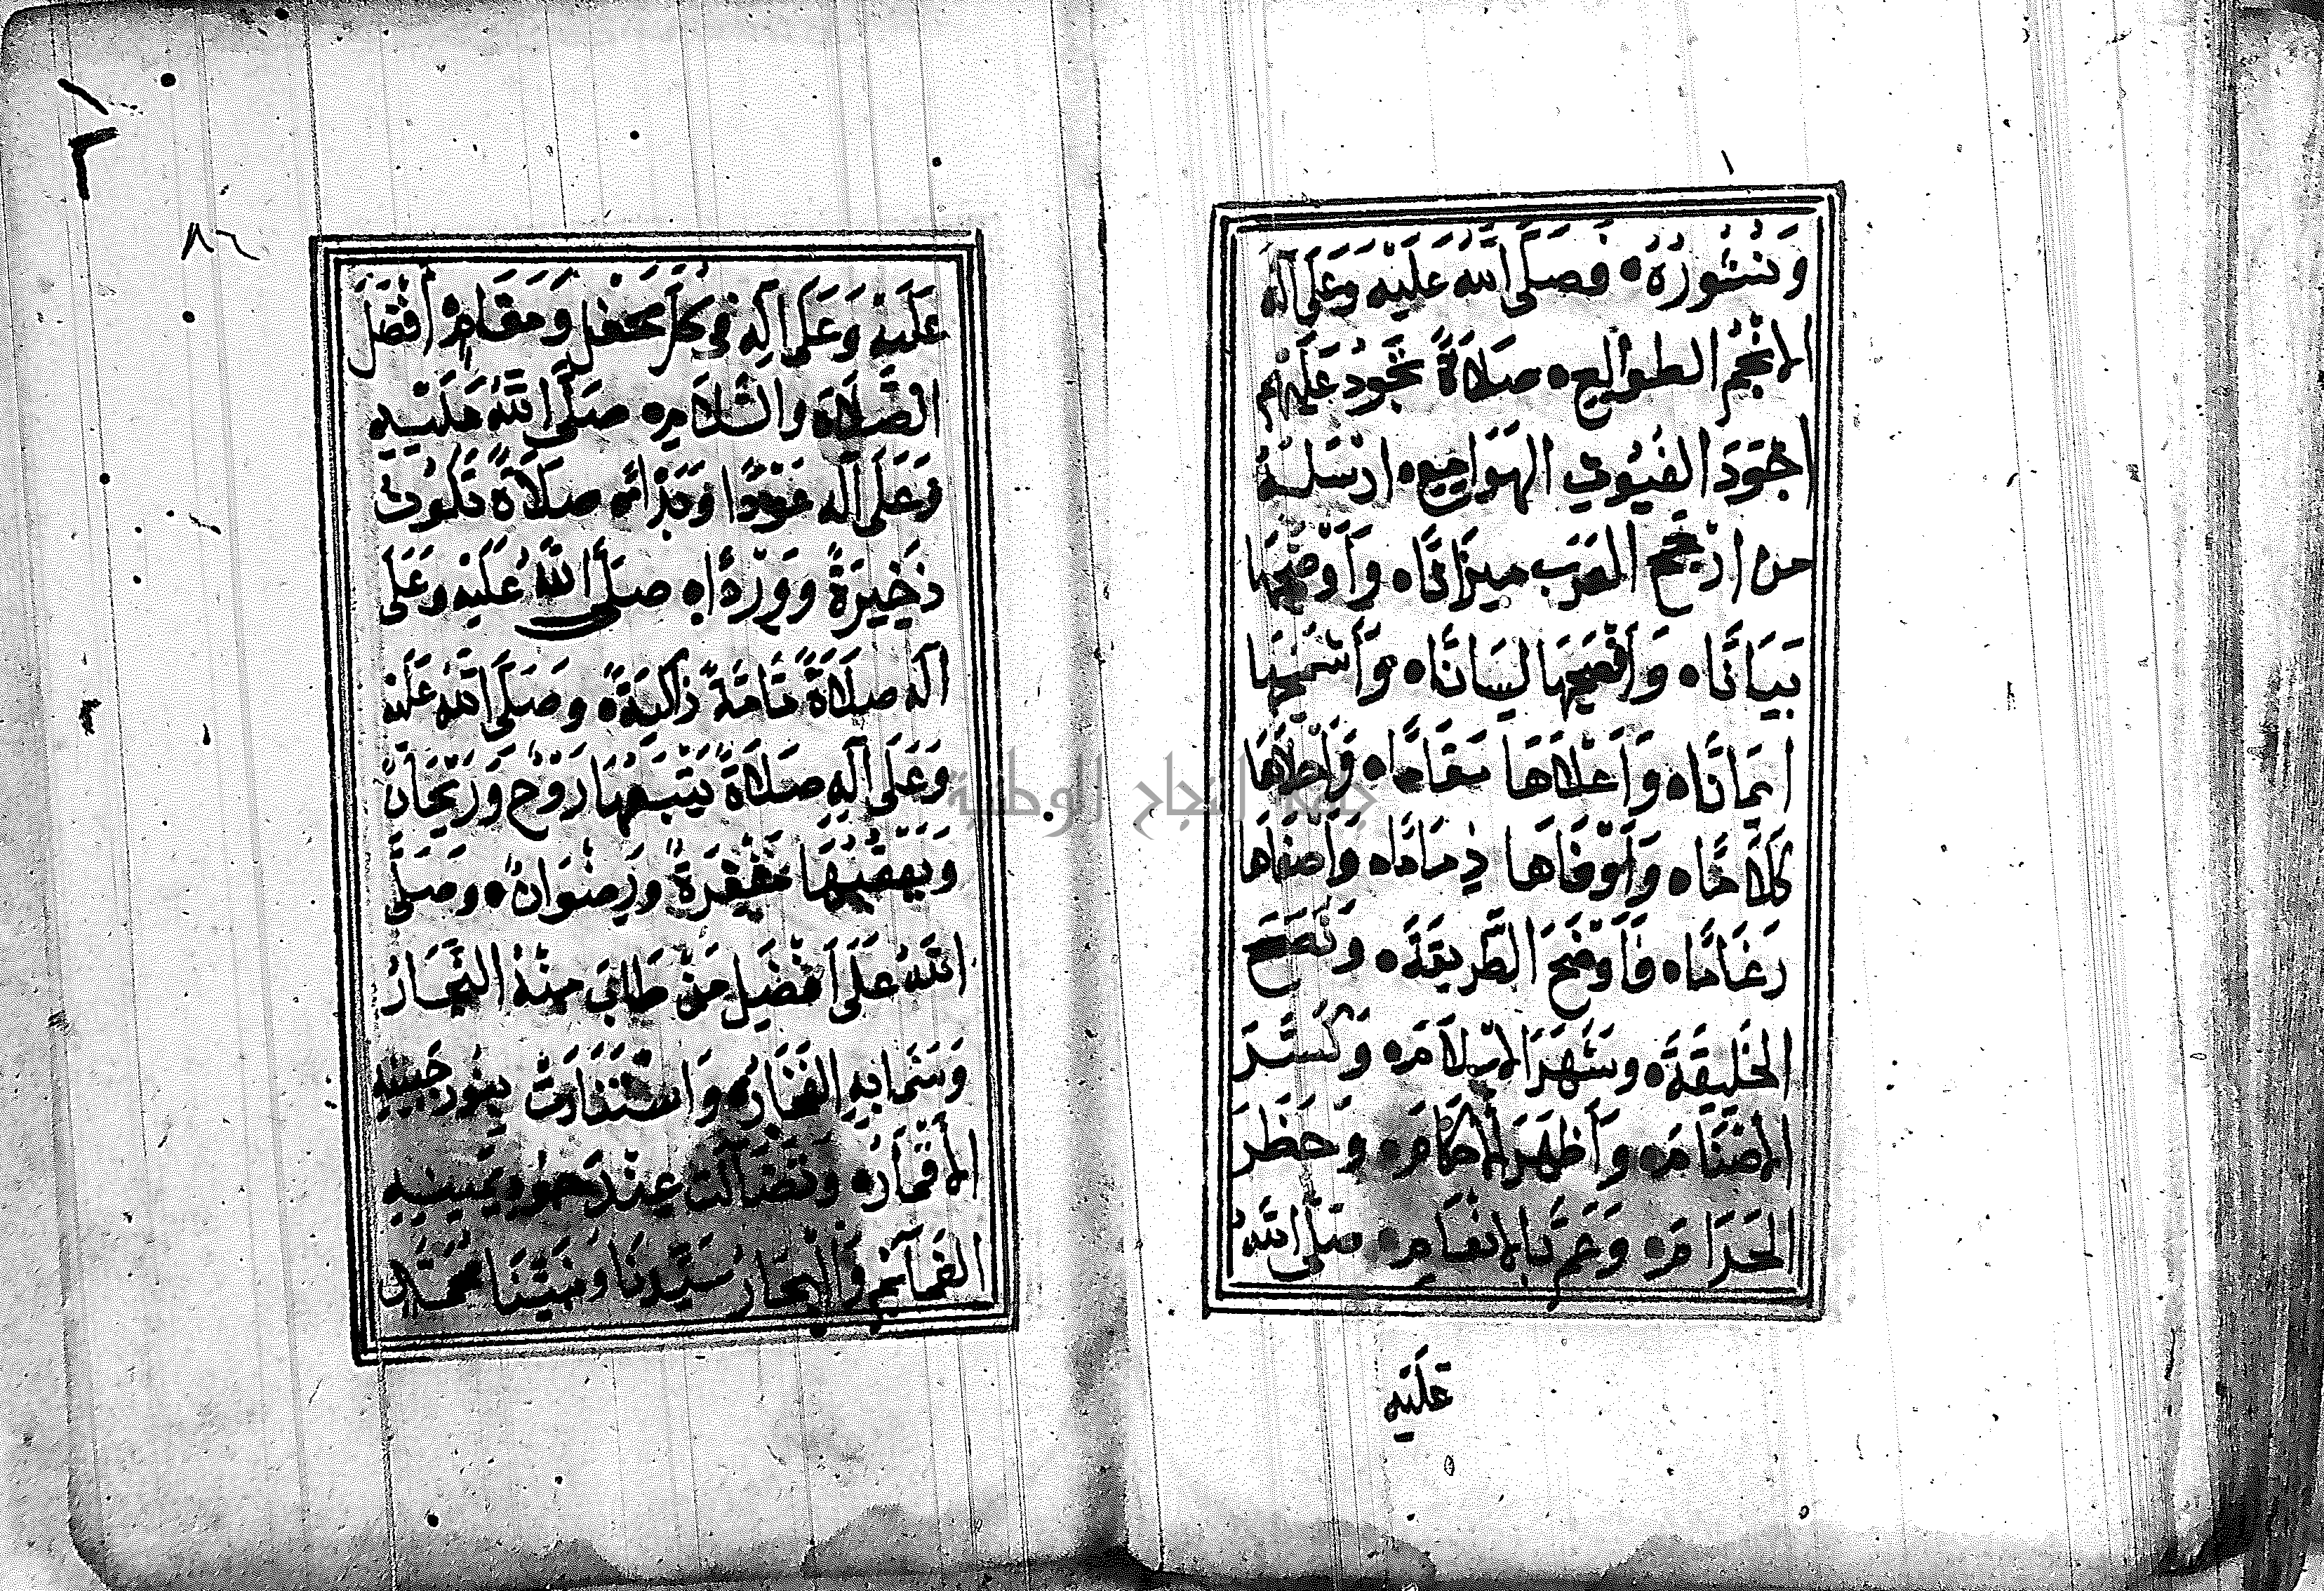 وَنُشُورُهُ • فَصَلَّى اللهُ عَلَيْهِ وَعَلَى آلِهِ
الأَنْجُمِ الطَّوَالِعِ • صَلَاةً تَجُودُ عَلَيْهِمْ
أَجْوَدَ الغُيُوثِ الهَوَامِعِ • أَرْسَلَهُ
مِنْ أَرْجَحِ العَرَبِ مِيزَانًا • وَأَوْضَحِهَا
بَيَانًا • وَأَفْصَحِهَا لِسَانًا • وَأَشْمَخِهَا
إِيمَانًا • وَأَعْلَاهَا مَقَامًا • وَأَحْلَاهَا
كَلَامًا • وَأَوْفَاهَا ذِمَامًا • وَأَصْفَاهَا
رَغَامًا • فَأَوْضَحَ الطَّرِيقَةَ • وَنَصَحَ
الخَلِيقَةَ • وَشَهَرَ الإِسْلَامَ • وَكَسَّرَ
الأَصْنَامَ • وَأَظْهَرَ الأَحْكَامَ • وَحَظَرَ
الحَرَامَ • وَعَمَّ بِالإِنْعَامِ • صَلَّى اللهُ
عَلَيْهِ
٨٢
عَلَيْهِ وَعَلَى آلِهِ فِي كُلِّ مَحْفِلٍ وَمَقَامٍ أَفْضَلَ
الصَّلَاةِ وَالسَّلَامِ • صَلَّى اللهُ عَلَيْهِ
وَعَلَى آلِهِ عَوْدًا وَبَدْأً • صَلَاةً تَكُونُ
ذَخِيرَةً وَوِرْدًا • صَلَّى اللهُ عَلَيْهِ وَعَلَى
آلِهِ صَلَاةً تَامَّةً زَاكِيَةً • وَصَلَّى اللهُ عَلَيْهِ
وَعَلَى آلِهِ صَلَاةً يَتْبَعُهَا رَوْحٌ وَرَيْحَانٌ
وَيَعْقُبُهَا مَغْفِرَةٌ وَرِضْوَانٌ • وَصَلَّى
اللهُ عَلَى أَفْضَلِ مَنْ طَابَ مِنْهُ النِّجَارُ
وَسَمَا بِهِ الفَخَارُ • وَاسْتَنَارَتْ بِنُورِ جَبِينِهِ
الأَقْمَارُ • وَتَضَاءَلَتْ عِنْدَ جُودِ يَمِينِهِ
الغَمَائِمُ وَالبِحَارُ سَيِّدِنَا وَنَبِيِّنَا مُحَمَّدٍ
جامعة النجاح الوطنية